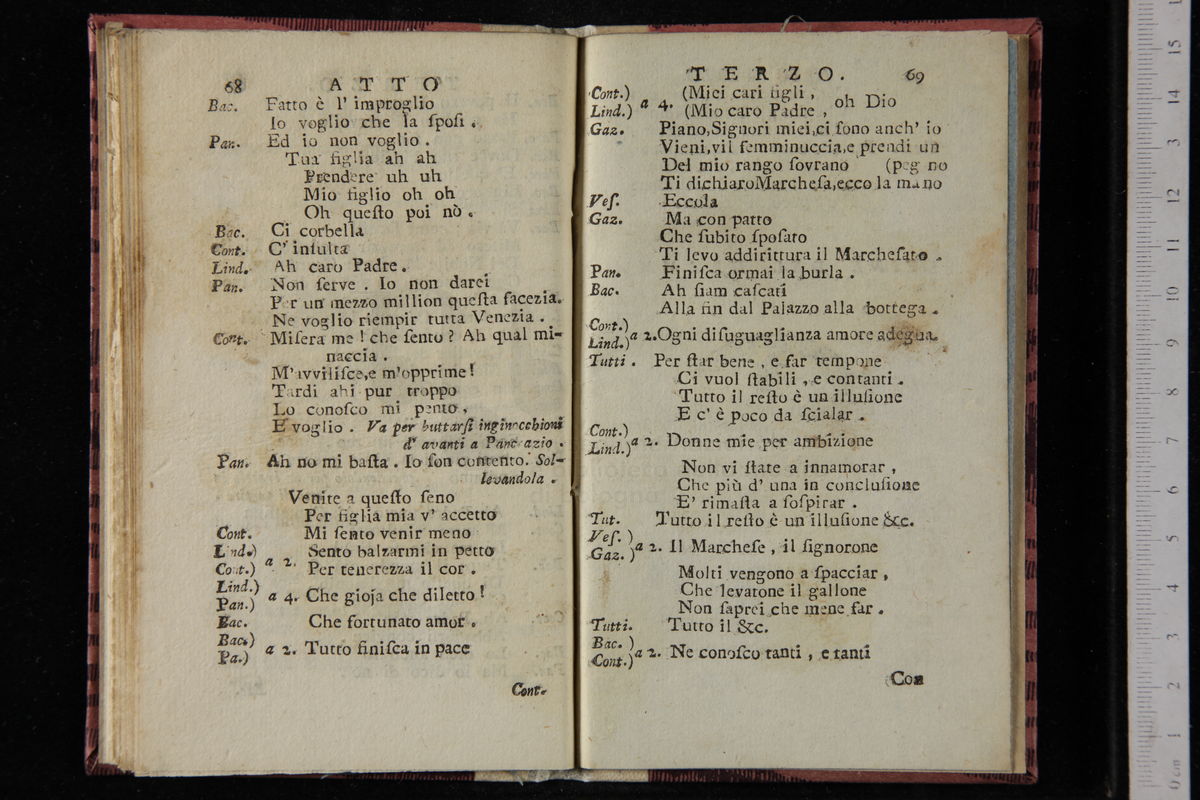 68 ATTO
Bac. Fatto è l' improglio
Io voglio che la ſpoſi.
Pan. Ed io non voglio.
Tua figlia ah ah
Prendere uh uh
Mio figlio oh oh
Oh queſto poi nò.
Bac. Ci corbella
Cont. C' inſulta
Lind. Ah caro Padre.
Pan. Non ſerve. Io non darei
Per un mezzo million queſta facezia.
Ne voglio riempir tutta Venezia.
Cont. Miſera me! che ſento? Ah qual mi-
naccia.
M'avviliſce,e m'opprime!
Tardi ahi pur troppo
Lo conoſco mi pento,
E voglio. Va per buttarſi inginocchioni
d' avanti a Pancrazio.
Pan. Ah no mi baſta. Io ſon contento. Sol-
levandola.
Venite a queſto ſeno
Per figlia mia v' accetto
Cont. Mi ſento venir meno
Lind.) Sento balzarmi in petto
Cont.) a 2. Per tenerezza il cor.
Lind.)
Pan.) a 4. Che gioja che diletto!
Bac. Che fortunato amor.
Bac.)
Pa.) a 2. Tutto finiſca in pace
Cont.
TERZO. 69
Cont.) (Miei cari figli,
Lind.) a 4. (Mio caro Padre, oh Dio
Gaz. Piano,Signori miei,ci ſono anch' io
Vieni,vil femminuccia,e prendi un
Del mio rango ſovrano (peg no
Ti dichiaroMarcheſa,ecco la mano
Veſ. Eccola
Gaz. Ma con patto
Che ſubito ſpoſato
Ti levo addirittura il Marcheſato.
Pan. Finiſca ormai la burla.
Bac. Ah ſiam caſcati
Alla fin dal Palazzo alla bottega.
Cont.)
Lind.) a 2. Ogni diſuguaglianza amore adegua.
Tutti. Per ſtar bene, e far tempone
Ci vuol ſtabili, e contanti.
Tutto il reſto è un illuſione
E c' è poco da ſcialar.
Cont.)
Lind.) a 2. Donne mie per ambizione
Non vi ſtate a innamorar,
Che più d' una in concluſione
E' rimaſta a ſoſpirar.
Tut. Tutto il reſto è un illuſione &c.
Veſ.)
Gaz.) a 2. Il Marcheſe, il ſignorone
Molti vengono a ſpacciar,
Che levatone il gallone
Non ſaprei che mene far.
Tutti. Tutto il &c.
Bac.)
Cont.) a 2. Ne conoſco tanti, e tanti
Con